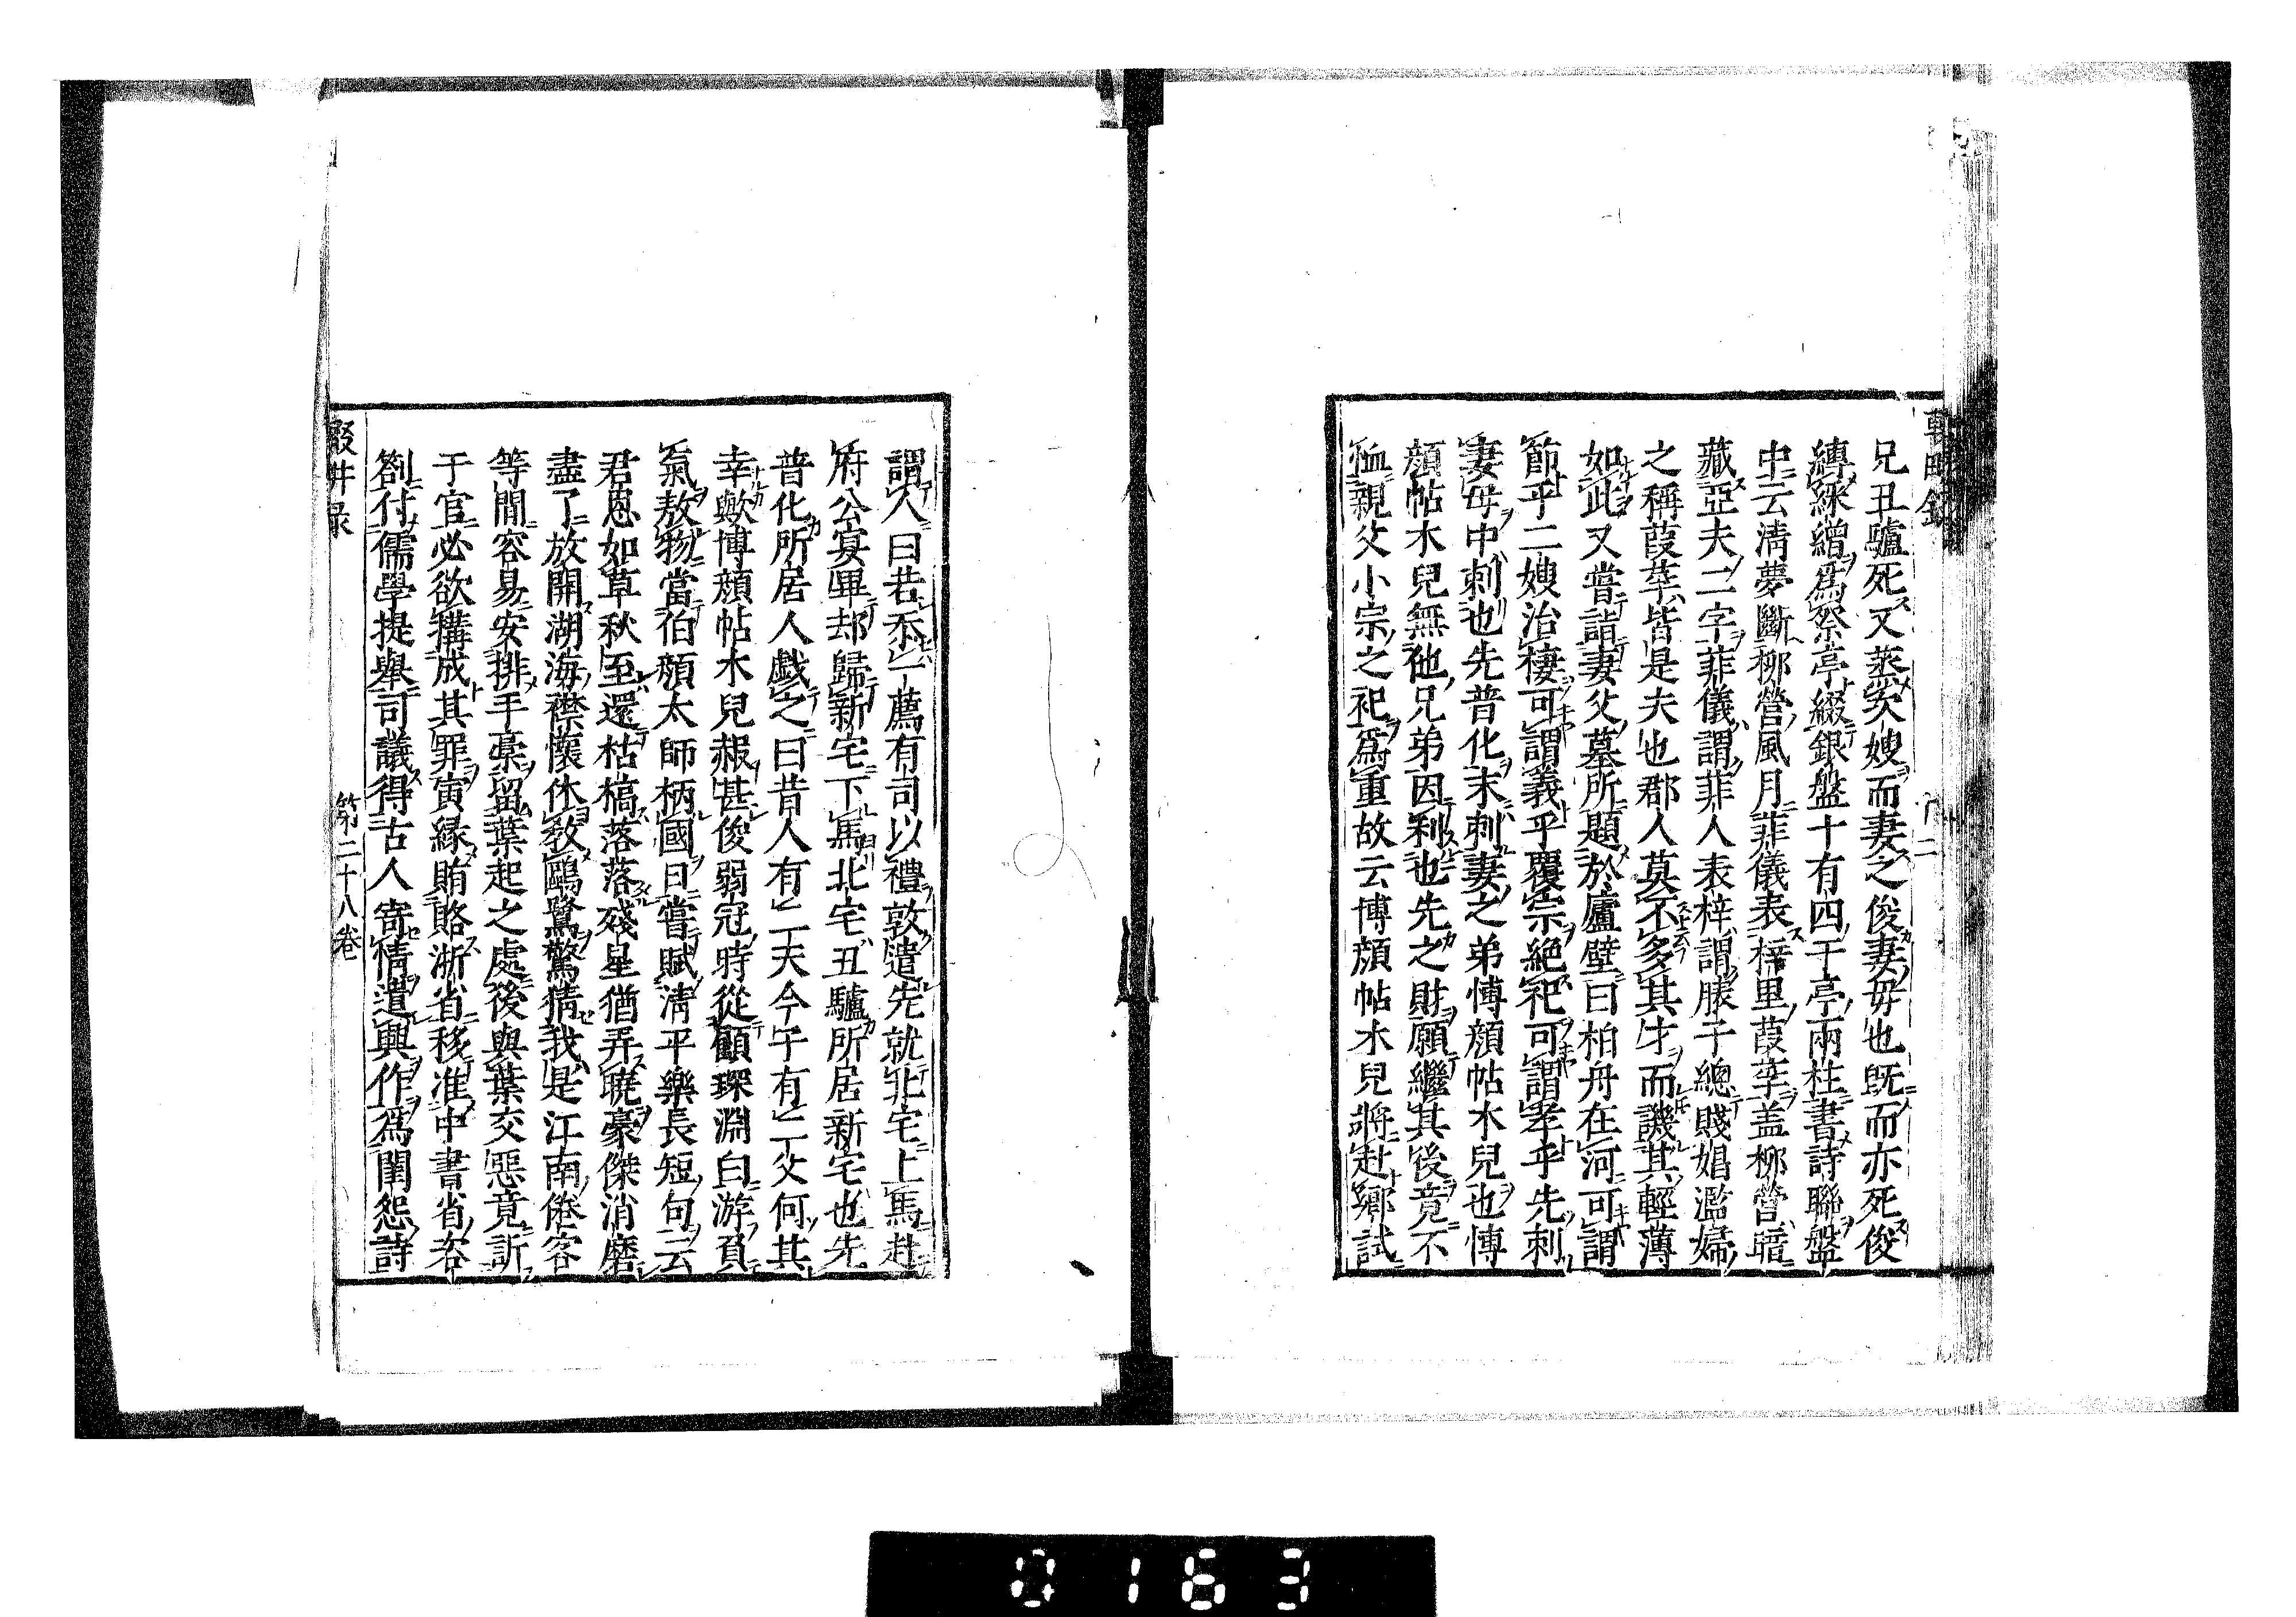 兄丑驢死又蒸奕嫂而妻之俊妻毋也既而亦死俊
縛綵繒爲祭亭綴銀盤十有四于亭兩柱書詩聯盤
中云淸夢斷柳營風月菲儀表梓里葭莩盖柳營暗
藏亞夫二字菲儀謂菲人表梓謂脿子總賤娼濫婦
之稱葭莩皆是夫也郡人莫不多其才而譏其輕薄
如此又嘗詣妻父墓所題於廬壁曰柏舟在河可謂
節乎二嫂治棲可謂義乎覆宗絕祀可謂孝乎先刺
妻母中刺也先普化末刺妻之弟愽顔帖木兒也愽
顔帖木兒無他兄弟因利也先之財願繼其後竟不
恤親父小宗之祀爲重故云愽顔帖木兒將赴鄉試
謂人曰若忝一薦有司以禮敦遣先就北宅上馬赴
府公宴畢却歸新宅下馬北宅丑驢所居新宅也先
普化所居人戱之曰昔人有二天今乍有二父何其
幸歟愽顔帖木兒赧甚俊弱冠時從顧琛淵白游負
氣敖物當伯顔太師柄國日嘗賦淸平樂長短句云
君恩如草秋至還枯槁落落殘星猶弄曉豪傑消磨
盡了放開湖海襟懷休教鷗鷺驚猜我是江南倦客
等閒容易安排手藁留葉起之處後與葉交惡竟訢
于官必欲搆成其罪寅縁賄賂浙省移准中書省咨
劄付儒學提舉司議得古人寄情遣興作爲閨怨詩
輟畊錄
第二十八卷